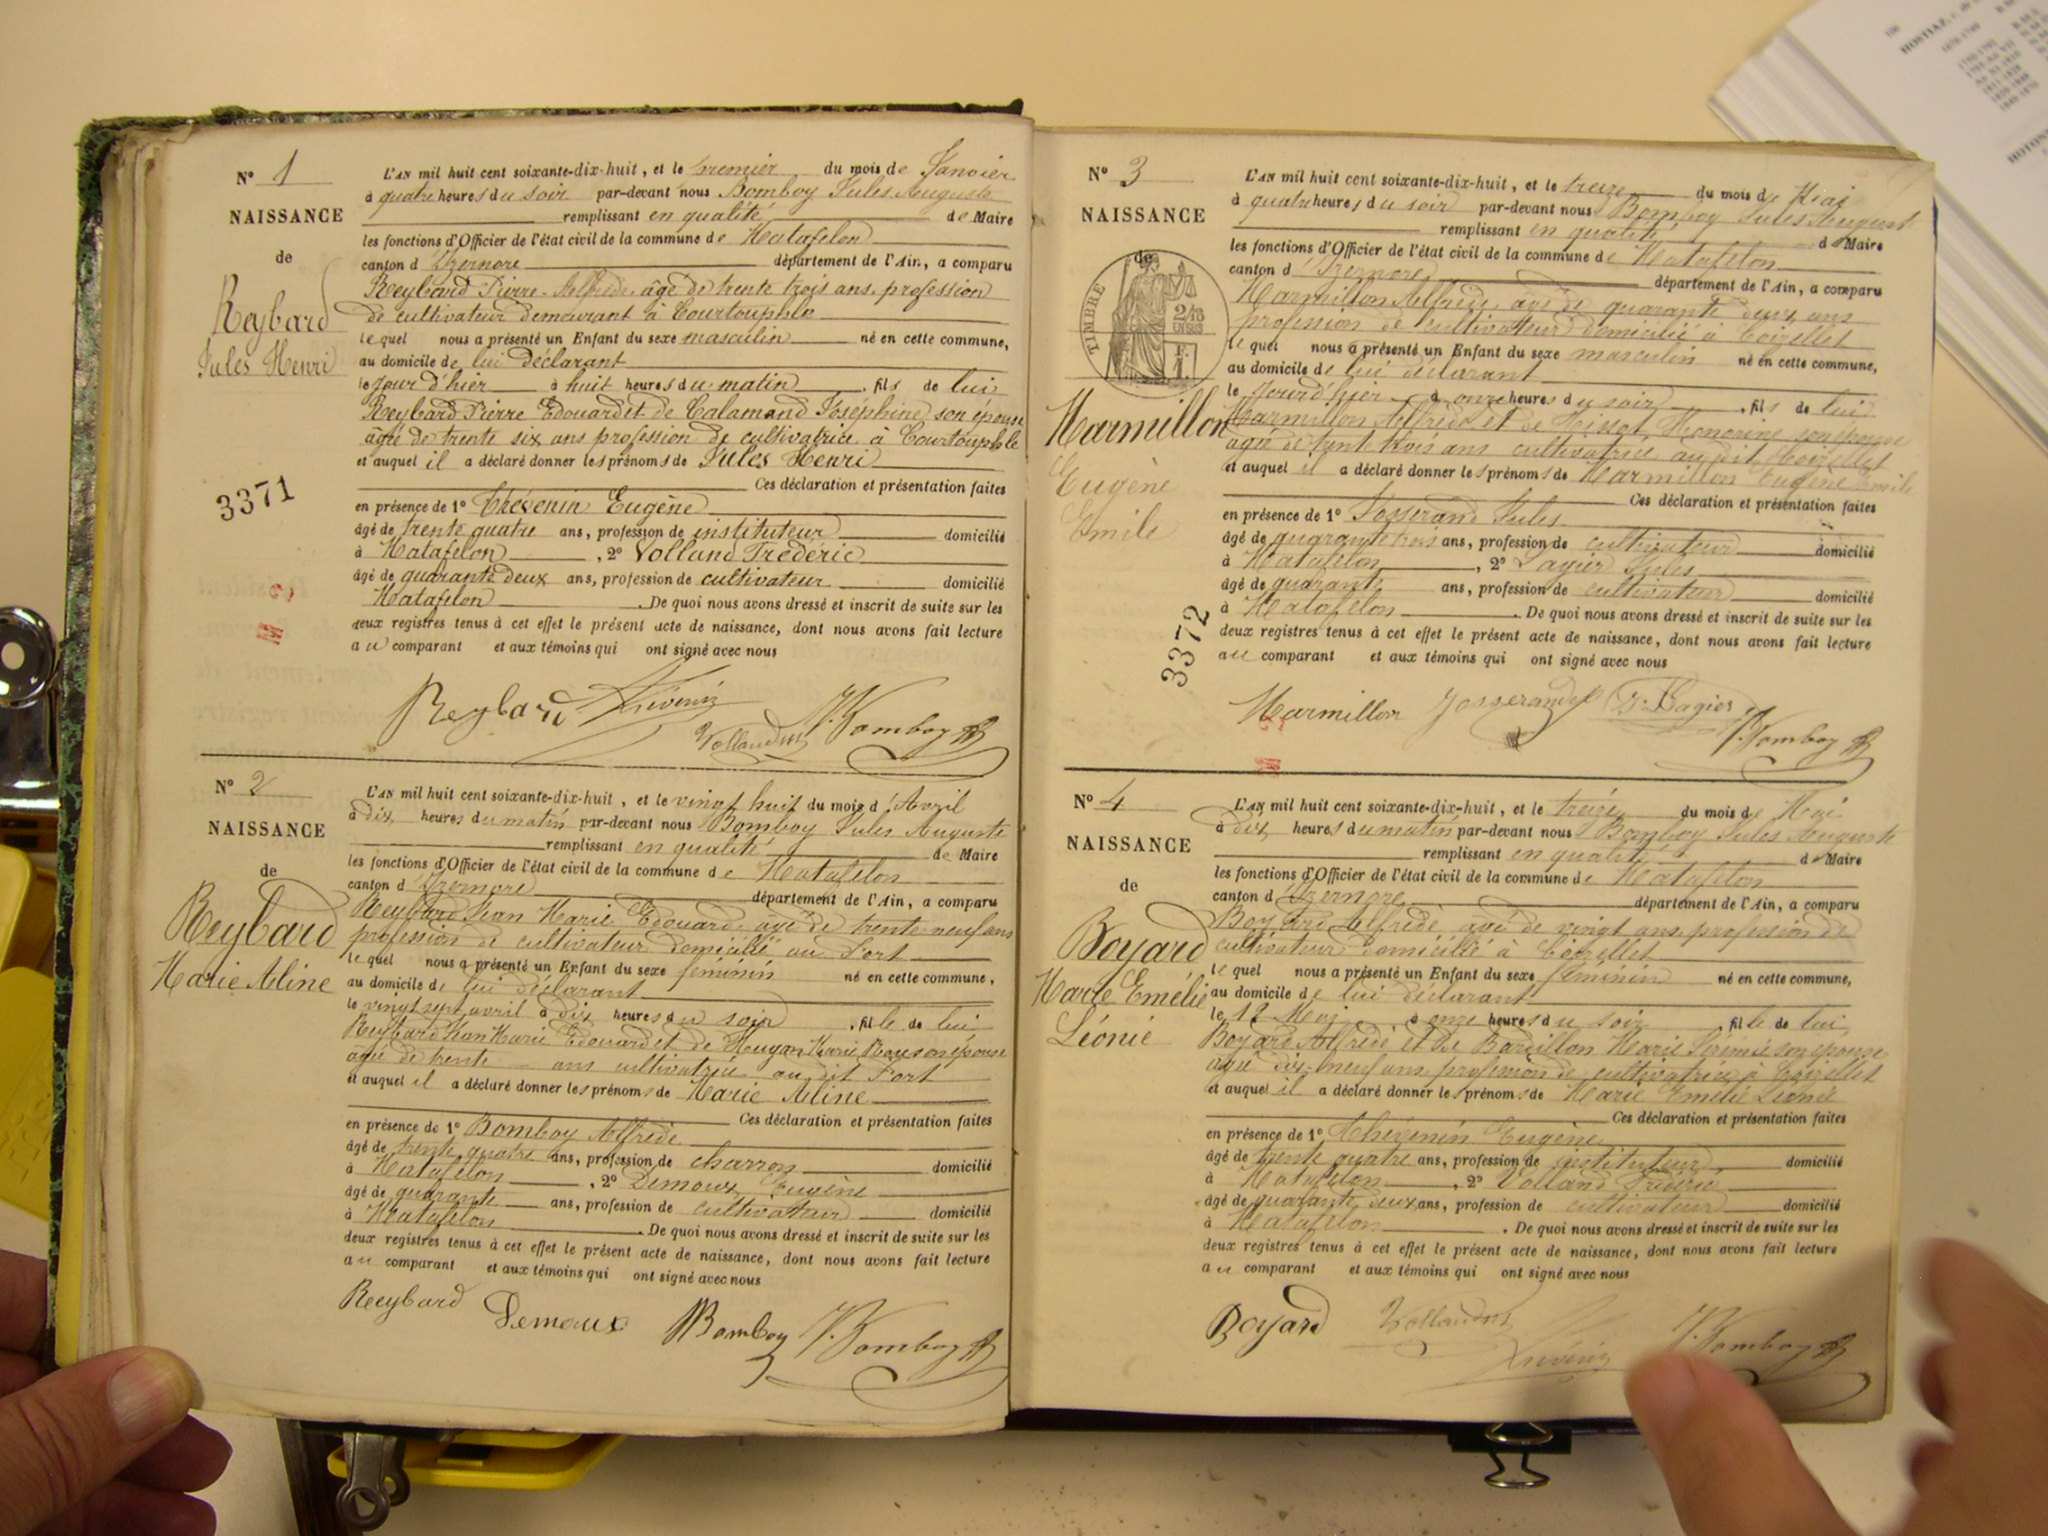 N° 1
NAISSANCE
de
Reybard
Jules Henri
3371
L'AN mil huit cent soixante-dix-huit, et le premier du mois de Janvier
à quatre heures du soir par-devant nous Bomboy Jules Auguste
remplissant en qualité de Maire
les fonctions d'Officier de l'état civil de la commune de Matafelon
canton d'Izernore département de l'Ain, a comparu
Reybard Pierre Alfred âgé de trente trois ans, profession
de cultivateur demeurant à Courtouphle
lequel nous a présenté un Enfant du sexe masculin né en cette commune,
au domicile de lui déclarant
le jour d'hier à huit heures du matin, fils de lui
Reybard Pierre Edouard et de Calamand Joséphine son épouse
âgée de trente six ans profession de cultivatrice à Courtouphle
et auquel il a déclaré donner les prénoms de Jules Henri
Ces déclaration et présentation faites
en présence de 1° Thévenin Eugène
âgé de trente quatre ans, profession de instituteur domicilié
à Matafelon, 2° Volland Frédéric
âgé de quarante deux ans, profession de cultivateur domicilié
Matafelon. De quoi nous avons dressé et inscrit de suite sur les
deux registres tenus à cet effet le présent acte de naissance, dont nous avons fait lecture
au comparant et aux témoins qui ont signé avec nous
Reybard Thévenin
Volland J. Bomboy
N° 2
NAISSANCE
de
Reybard
Marie Aline
L'AN mil huit cent soixante-dix-huit, et le vingt huit du mois d'Avril
à dix heures du matin par-devant nous Bomboy Jules Auguste
remplissant en qualité de Maire
les fonctions d'Officier de l'état civil de la commune de Matafelon
canton d'Izernore département de l'Ain, a comparu
Reybard Jean Marie Edouard, âgé de trente neuf ans
profession de cultivateur domicilié au Port
lequel nous a présenté un Enfant du sexe féminin né en cette commune,
au domicile de lui déclarant
le vingt sept avril à dix heures du soir, fille de lui
Reybard Jean Marie Edouard et de Marie son épouse
âgée de trente ans cultivatrice au dit Port
et auquel il a déclaré donner les prénoms de Marie Aline
Ces déclaration et présentation faites
en présence de 1° Bomboy Alfrède
âgé de trente quatre ans, profession de charron domicilié
à Matafelon, 2° Demoux Eugène
âgé de quarante ans, profession de cultivateur domicilié
à Matafelon. De quoi nous avons dressé et inscrit de suite sur les
deux registres tenus à cet effet le présent acte de naissance, dont nous avons fait lecture
au comparant et aux témoins qui ont signé avec nous
Reybard Demoux Bomboy J. Bomboy
N° 3
NAISSANCE
de
TIMBRE
Marmillon
Eugène
Emile
3372
L'AN mil huit cent soixante-dix-huit, et le treize du mois de Mai
à quatre heures du soir par-devant nous Bomboy Jules Auguste
remplissant en qualité de Maire
les fonctions d'Officier de l'état civil de la commune de Matafelon
canton d'Izernore département de l'Ain, a comparu
Marmillon Alfrède, âgé de quarante deux ans
profession de cultivateur domicilié à Coizellet
lequel nous a présenté un Enfant du sexe masculin né en cette commune,
au domicile de lui déclarant
le jour d'hier à onze heures du soir, fils de lui
Marmillon Alfrède et de Honorine son épouse
âgée de trente trois ans cultivatrice au dit Coizellet
et auquel il a déclaré donner les prénoms de Marmillon Eugène Emile
Ces déclaration et présentation faites
en présence de 1° Josserand Jules
âgé de quarante trois ans, profession de cultivateur domicilié
à Matafelon, 2° Lagier Jules
âgé de quarante ans, profession de cultivateur domicilié
à Matafelon. De quoi nous avons dressé et inscrit de suite sur les
deux registres tenus à cet effet le présent acte de naissance, dont nous avons fait lecture
au comparant et aux témoins qui ont signé avec nous
Marmillon Josserand J. Lagier
J. Bomboy
N° 4
NAISSANCE
de
Boyard
Marie Emélie
Léonie
L'AN mil huit cent soixante-dix-huit, et le treize du mois de Mai
à dix heures du matin par-devant nous Bomboy Jules Auguste
remplissant en qualité de Maire
les fonctions d'Officier de l'état civil de la commune de Matafelon
canton d'Izernore département de l'Ain, a comparu
Boyard Alfrède, âgé de vingt ans, profession de
cultivateur domicilié à Coizellet
lequel nous a présenté un Enfant du sexe féminin né en cette commune,
au domicile de lui déclarant
le 12 Mai à onze heures du soir, fille de lui
Boyard Alfrède et de Bardillon Marie son épouse
âgée dix-neuf ans profession de cultivatrice à Coizellet
et auquel il a déclaré donner les prénoms de Marie Emélie Léonie
Ces déclaration et présentation faites
en présence de 1° Thévenin Eugène
âgé de trente quatre ans, profession de instituteur domicilié
à Matafelon, 2° Volland Frédéric
âgé de quarante deux ans, profession de cultivateur domicilié
à Matafelon. De quoi nous avons dressé et inscrit de suite sur les
deux registres tenus à cet effet le présent acte de naissance, dont nous avons fait lecture
au comparant et aux témoins qui ont signé avec nous
Boyard Volland Thévenin J. Bomboy